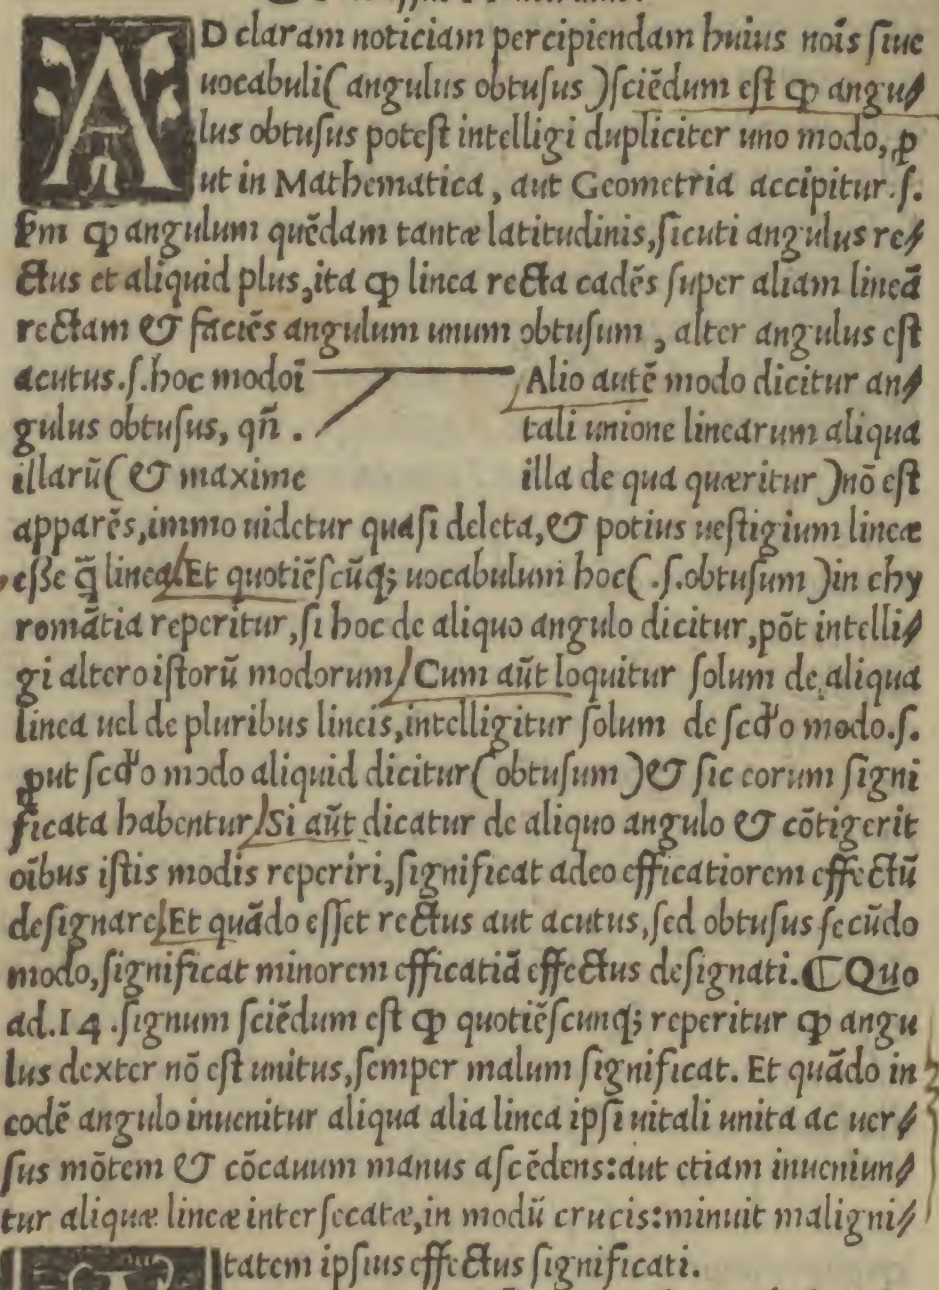 AD claram noticiam percipiendam huius noīs ſiue
uocabuli( angulus obtuſus )ſciēdum eſt ꝙ angu⸗
lus obtuſus poteſt intelligi dupliciter uno modo, ꝓ
ut in Mathematica, aut Geometria accipitur.ſ.
ꝙ angulum quēdam tantæ latitudinis,ſicuti angulus re⸗
ctus et aliquid plus,ita ꝙ linea recta cadēs ſuper aliam lineā
rectam & faciēs angulum unum obtuſum , alter angulus eſt
acutus.ſ.hoc modoī Alio autē modo dicitur an⸗
gulus obtuſus, qn̄ . tali unione linearum aliqua
illarū( & maxime illa de qua quæritur )nō eſt
apparēs,immo uidetur quaſi deleta,& potius ueſtigium lineæ
eſſe q̄ linea.Et quotiēſcūqꝫ uocabulum hoc( .ſ.obtuſum )in chy
romātia reperitur,ſi hoc de aliquo angulo dicitur,pōt intelli⸗
gi altero iſtorū modorum/Cum aūt loquitur ſolum de aliqua
linea uel de pluribus lineis,intelligitur ſolum de ſcd'o modo.ſ.
ꝓut ſcd'o modo aliquid dicitur( obtuſum )& ſic eorum ſigni
ficata habentur/Si aūt dicatur de aliquo angulo & cōtigerit
oībus iſtis modis reperiri,ſignificat adeo efficatiorem effectū
deſignare.Et quādo eſſet rectus aut acutus,ſed obtuſus ſecūdo
modo,ſignificat minorem efficatiā effectus deſignati.⸿Quo
ad.14.ſignum ſciēdum eſt ꝙ quotiēſcunqꝫ reperitur ꝙ angu
lus dexter nō eſt unitus,ſemper malum ſignificat. Et quādo in
eodē angulo inuenitur aliqua alia linea ipſi uitali unita ac uer⸗
ſus mōtem & cōcauum manus aſcēdens:aut etiam inueniun⸗
tur aliquæ lineæ interſecatæ,in modū crucis:minuit maligni⸗
tatem ipſius effectus ſignificati.